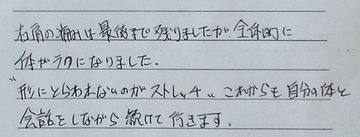 右肩の痛みは最後まで残りましたが、全体的に
体がラクになりました。
"形にとらわれないのがストレッチ„ これからも自分の体と
会話をしながら続けて行きます。